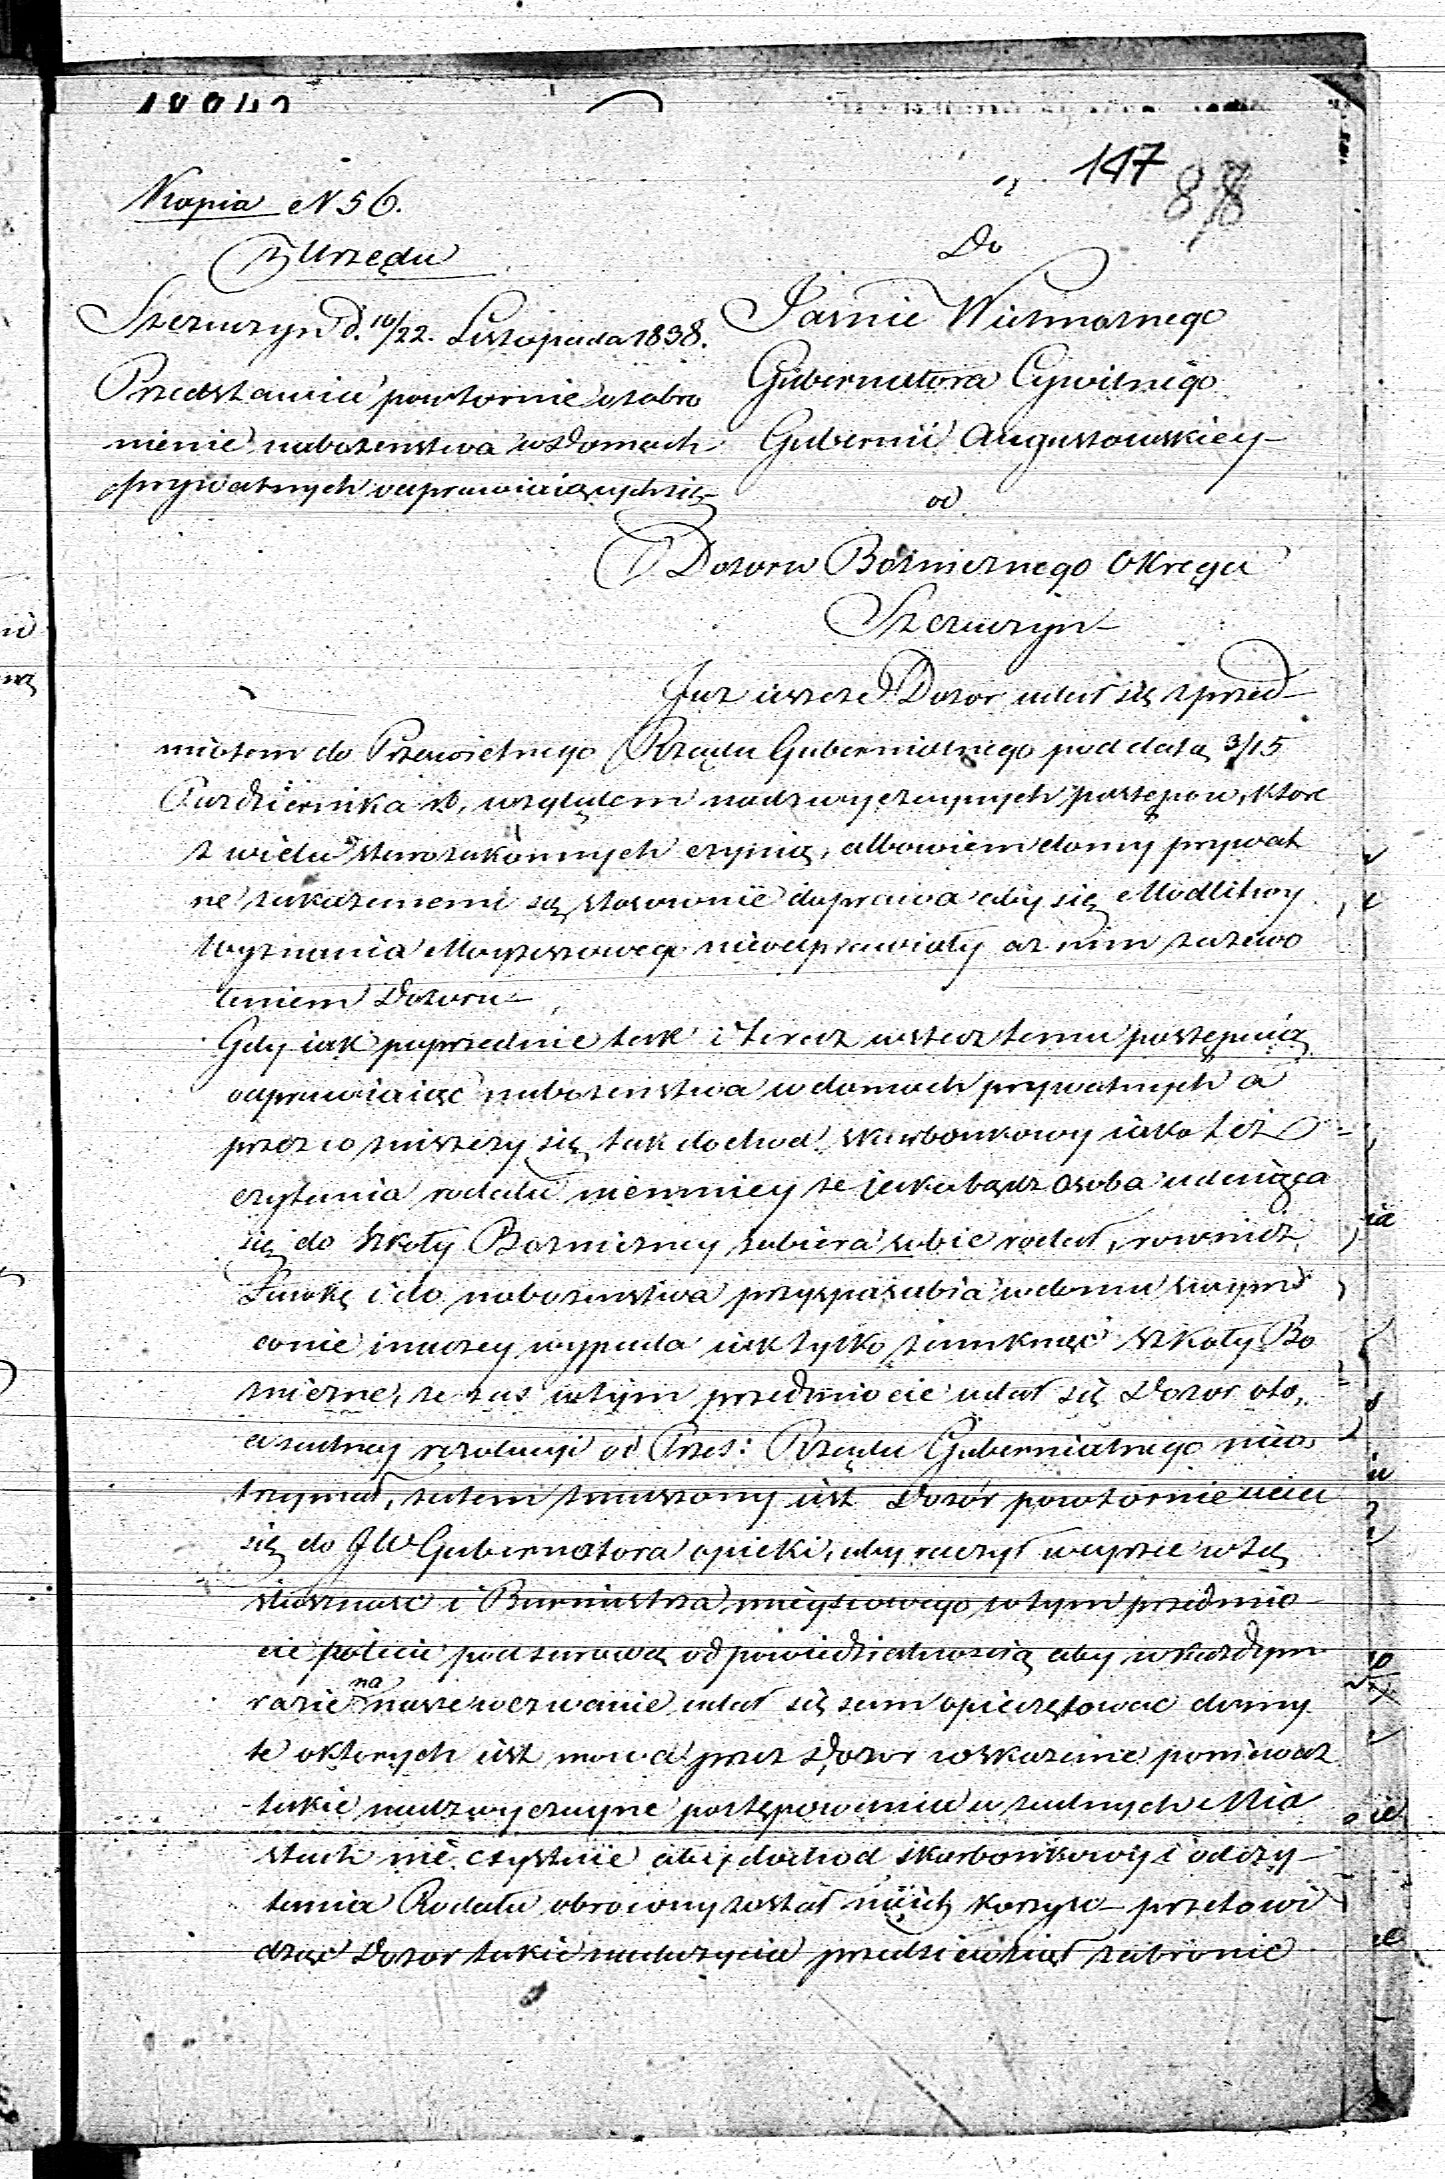 147
88
Kopia N 56.
z Urzędu
Szczuczyn d. 10/22. Listopada 1838.
Przedstawia powtornie o zabro
nienie nabozenstwa w domach
prywatnych odprawiaiących się
Do
Jasnie Wielmoznego
Gubernatora Cywilnego
Gubernii Augustowskiey
od
Dozoru Bożniczego Okręgu
Szczuczyn
Juz ieszcze Dozor udał się z przed-
miotem do Prześwietnego Rządu Gubernialnego pod datą 3/15
Pazdziernika rb, względem nadzwyczaynych postępow, ktore
z wielu starozakonnych czynią, albowiem domy prywat
ne zakazanemi są stosownie do prawa aby się Modlitwy
Wyznania Moyzeszowego nieodprawiały az nim zezwo
leniem Dozoru
Gdy iak poprzednie tak i teraz wstecz temu postępuią
odprawiaiąc nabozenstwa w domach prywatnych a
przez co zniszczy się tak dochod skarbonkowy iako tez
czytania rodału niemniey ze jakabądz osoba udaiąca
się do Szkoły Bozniczney zabiera sobie rodał, rowniez
Ławkę i do nabozenstwa przysposabia w domu swym
co nie inaczey wypada iak tylko zamknąć Szkoły Bo
zniczne, ze zas w tym przedmiocie udał się Dozor oto,
a zadney rezolucyi od Prześ: Rządu Gubernialnego nieo
trzymał, zatem zmuszony iest Dozór powtornie udać
się do JW Gubernatora opieki, aby raczył weyrzec w tą
słusznosc i Burmistrza mieyscowego w tym przedmio
cie polecic pod surową odpowiedzialnoscią aby w kazdym
razie na nasze wezwanie udał się sam opieczętowac domy
te o ktorych iest mowa przez Dozor wskazane poniewaz
takie nadzwyczayne postępowania w zadnych Mia
stach nie czystnie aby dochod skarbonkowy i od czy-
tania Rodału obrocony został na ich korzysc przeto wi
dząc Dozor takie naduzycia przedsiewziął zabronic